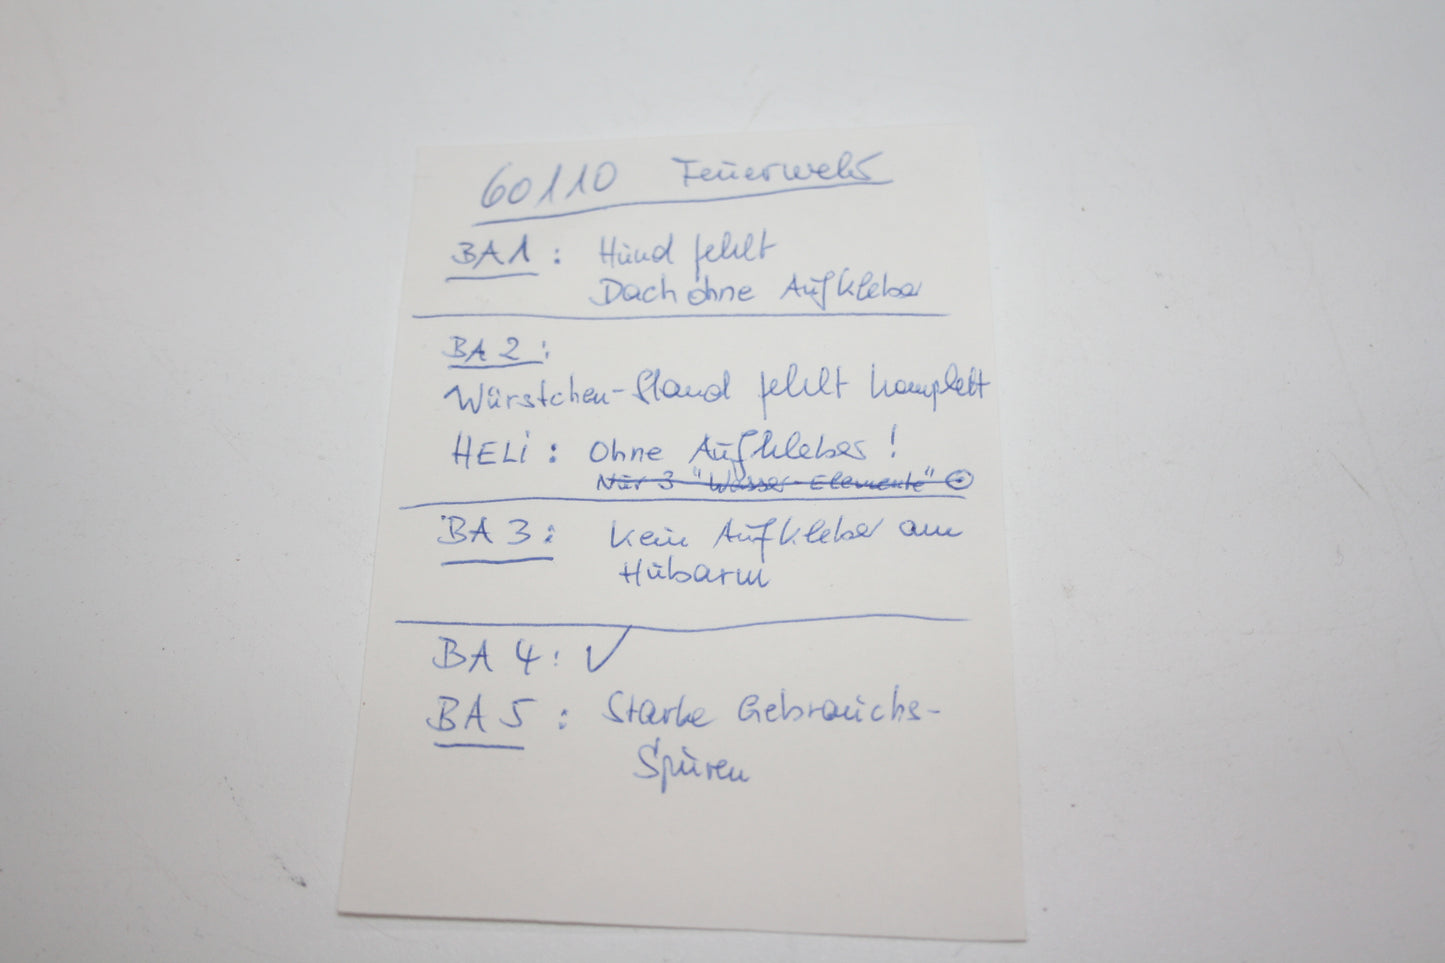 60110 Feuerwehr
BA1: Hund fehlt
Dach ohne Aufkleber
BA2:
Würstchen-Stand fehlt komplett
HELI: Ohne Aufkleber!
Nur 3 "Wasser-Elemente"
BA3: Kein Aufkleber am
Hubarm
BA 4: ✓
BA5: Starke Gebrauchs-
Spuren